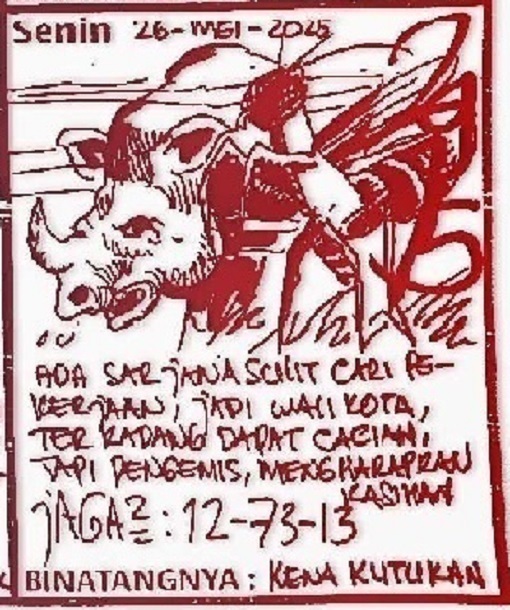 Senin 26-MEI-2025
ADA SARJANA SULIT CARI PE-
KERJAAN, JADI WALI KOTA,
TERKADANG DAPAT CACIAN,
JADI PENGEMIS, MENGHARAPKAN
KASIHAN
JAGA2 : 12-73-13
BINATANGNYA : KENA KUTUKAN